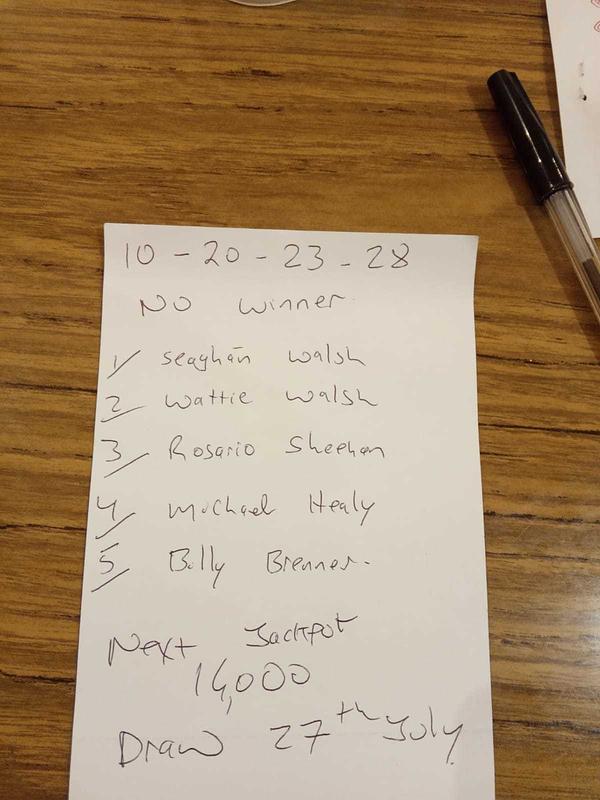 10 - 20 - 23 - 28
No winner
1/ Seaghán Walsh
2 Wattie Walsh
3 Rosario Sheehan
4 Michael Healy
5 Billy Brenner.
Next Jackpot
14,000
Draw 27th July